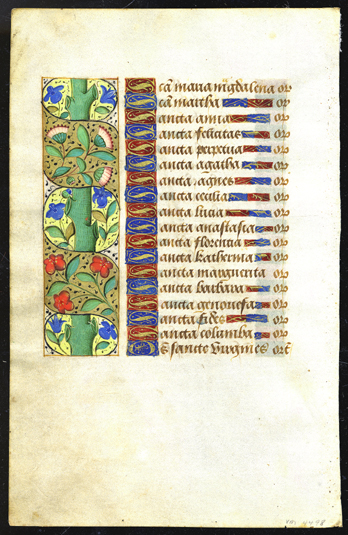 Sca maria magdalena or
Sca martha or
Sancta anna or
Sancta felicitas or
Sancta perpetua or
Sancta agatha or
Sancta agnes or
Sancta cecilia or
Sancta lucia or
Sancta anastasia or
Sancta florentia or
Sancta katherina or
Sancta margareta or
Sancta barbara or
Sancta genovefa or
Sancta fides or
Sancta columba or
Oēs sancte virgines orē